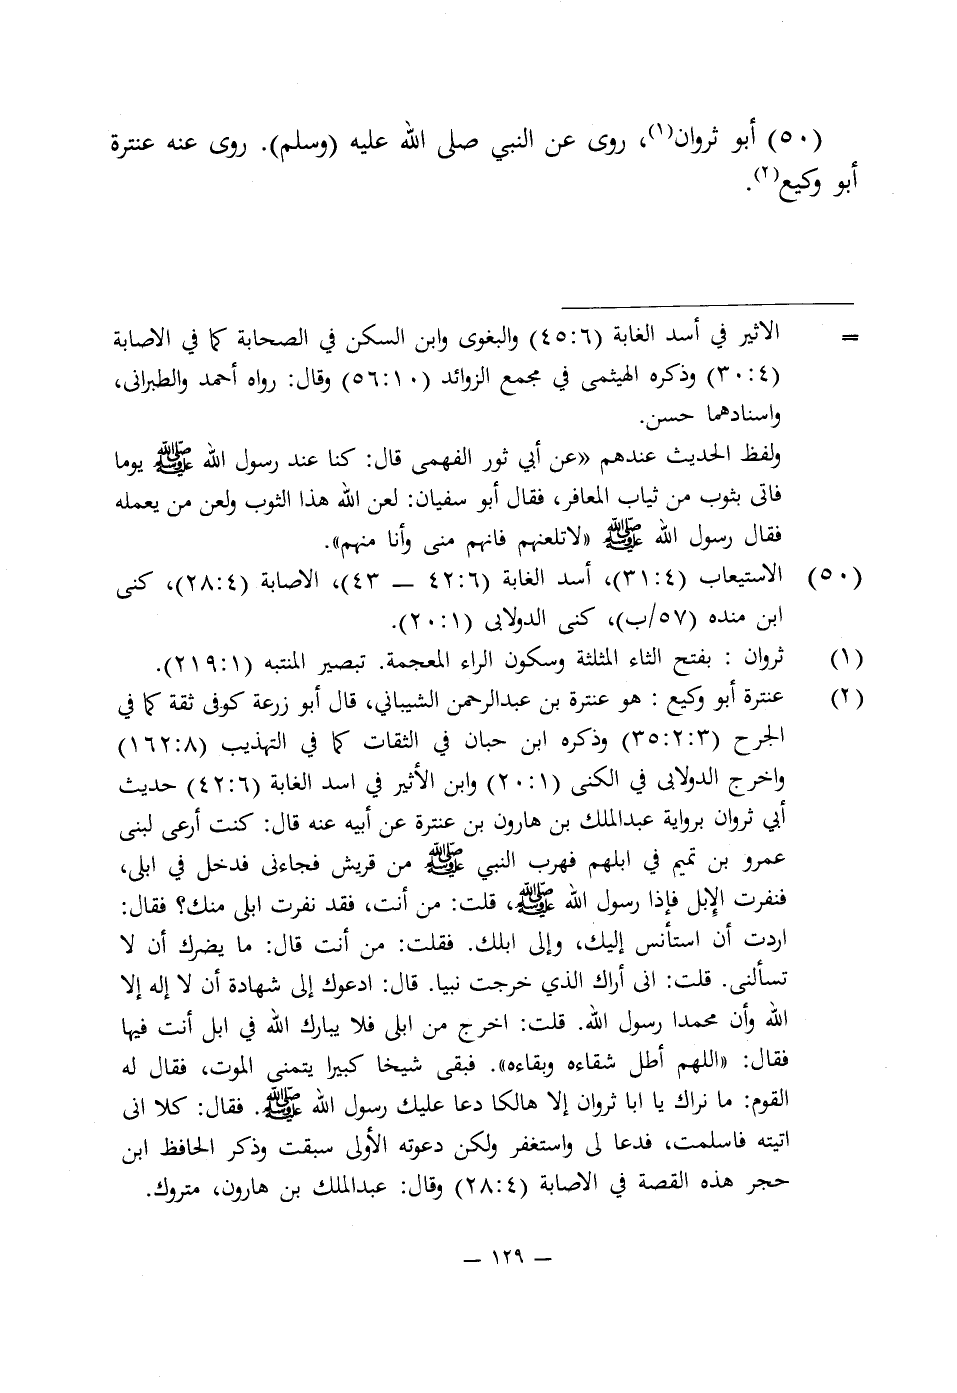 (٥٠) أبو ثروان(١)، روى عن النبي صلى الله عليه (وسلم). روى عنه عنترة
أبو وكيع(٢).
= الاثير في أسد الغابة (٤٥:٦) والبغوى وابن السكن في الصحابة كما في الاصابة
(٣٠:٤) وذكره الهيثمى في مجمع الزوائد (٥٦:١٠) وقال: رواه أحمد والطبرانى،
واسنادهما حسن.
ولفظ الحديث عندهم «عن أبي ثور الفهمى قال: كنا عند رسول الله ﷺ يوما
فاتى بثوب من ثياب المعافر، فقال أبو سفيان: لعن الله هذا الثوب ولعن من يعمله
فقال رسول الله ﷺ «لاتلعنهم فانهم منى وأنا منهم».
(٥٠) الاستيعاب (٣١:٤)، أسد الغابة (٤٢:٦ — ٤٣)، الاصابة (٢٨:٤)، كنى
ابن منده (٥٧/ب)، كنى الدولابى (٢٠:١).
(١) ثروان : بفتح الثاء المثلثة وسكون الراء المعجمة. تبصير المنتبه (٢١٩:١).
(٢) عنترة أبو وكيع : هو عنترة بن عبدالرحمن الشيباني، قال أبو زرعة كوفى ثقة كما في
الجرح (٣٥:٢:٣) وذكره ابن حبان في الثقات كما في التهذيب (١٦٢:٨)
واخرج الدولابى في الكنى (٢٠:١) وابن الأثير في اسد الغابة (٤٢:٦) حديث
أبي ثروان برواية عبدالملك بن هارون بن عنترة عن أبيه عنه قال: كنت أرعى لبنى
عمرو بن تميم في ابلهم فهرب النبي ﷺ من قريش فجاءنى فدخل في ابلى،
فنفرت الإبل فإذا رسول الله ﷺ، قلت: من أنت، فقد نفرت ابلى منك؟ فقال:
اردت أن استأنس إليك، وإلى ابلك. فقلت: من أنت قال: ما يضرك أن لا
تسألنى. قلت: انى أراك الذي خرجت نبيا. قال: ادعوك إلى شهادة أن لا إله إلا
الله وأن محمدا رسول الله. قلت: اخرج من ابلى فلا يبارك الله في ابل أنت فيها
فقال: «اللهم أطل شقاءه وبقاءه». فبقى شيخا كبيرا يتمنى الموت، فقال له
القوم: ما نراك يا ابا ثروان إلا هالكا دعا عليك رسول الله ﷺ. فقال: كلا انى
اتيته فاسلمت، فدعا لى واستغفر ولكن دعوته الأولى سبقت وذكر الحافظ ابن
حجر هذه القصة في الاصابة (٢٨:٤) وقال: عبدالملك بن هارون، متروك.
— ١٢٩ —